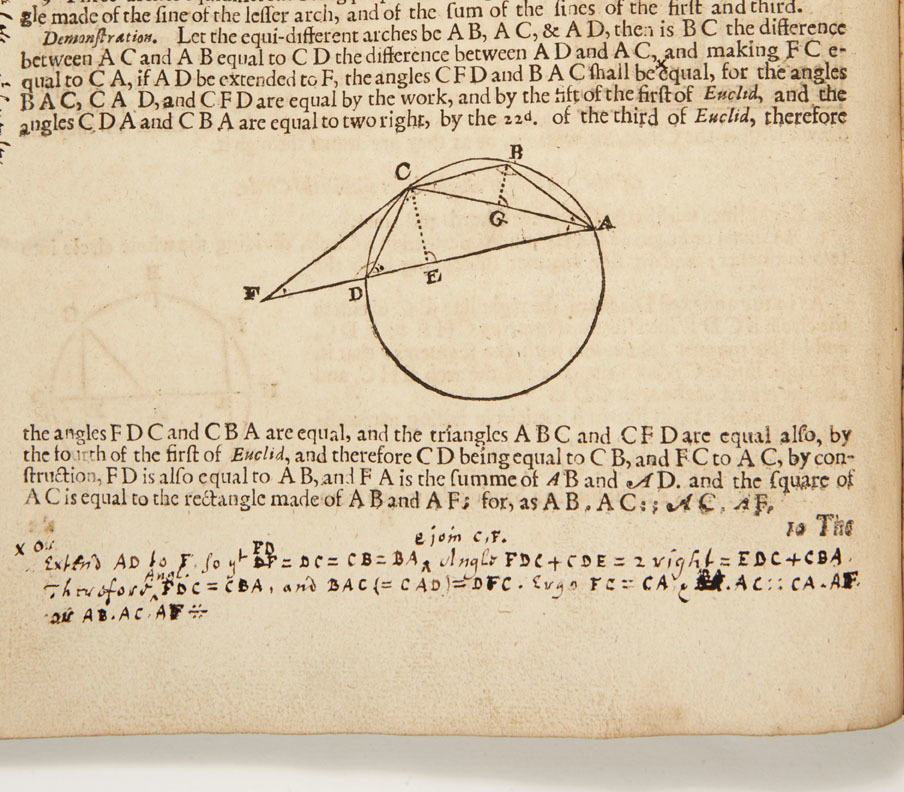 gle made of the ſine of the leſſer arch, and of the ſum of the ſines of the firſt and third.
Demonſtration. Let the equi-different arches be A B, A C, & A D, then is B C the difference
between A C and A B equal to C D the difference between A D and A C, x and making F C e-
qual to C A, if A D be extended to F, the angles C F D and B A C ſhall be equal, for the angles
B A C, C A D, and C F D are equal by the work, and by the fift of the firſt of Euclid, and the
angles C D A and C B A are equal to two right, by the 22d. of the third of Euclid, therefore
B
C
G
A
E
F
D
the angles F D C and C B A are equal, and the triangles A B C and C F D are equal alſo, by
the fourth of the firſt of Euclid, and therefore C D being equal to C B, and F C to A C, by con-
ſtruction, F D is alſo equal to A B, and F A is the ſumme of A B and A D. and the ſquare of
A C is equal to the rectangle made of A B and A F; for, as A B . A C : : A C . A F.
10 The
x Or
& join C,F.
Extend AD to F. so yt FD = DC = CB = BA, Angle FDC + CDE = 2 right = EDC + CBA.
Therefore Angl. FDC = CBA, and BAC (= CAD) = DFC. Ergo FC = CA . AC :: CA . AF
AB. AC. AF ∺